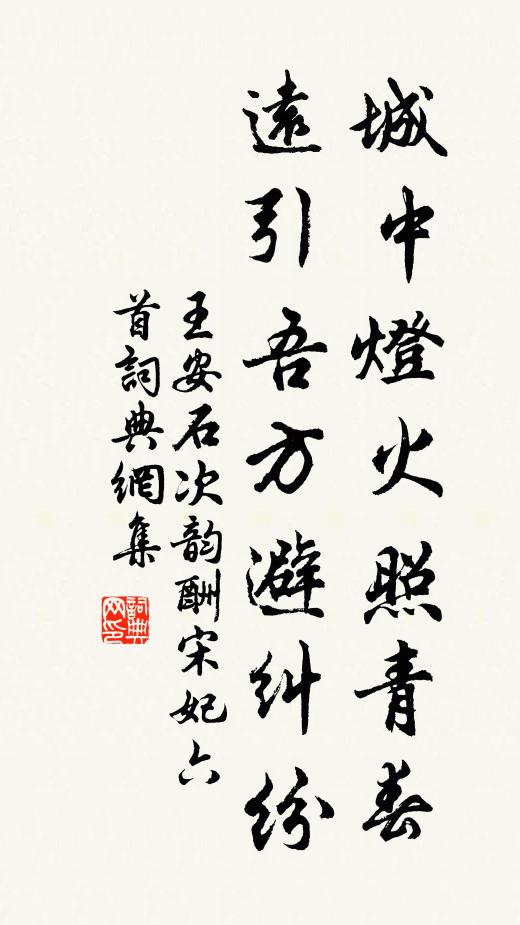 城中燈火照青春
遠引吾方避糾紛
王安石次韵酬宋妃六
首詞典網集
詞典
网印